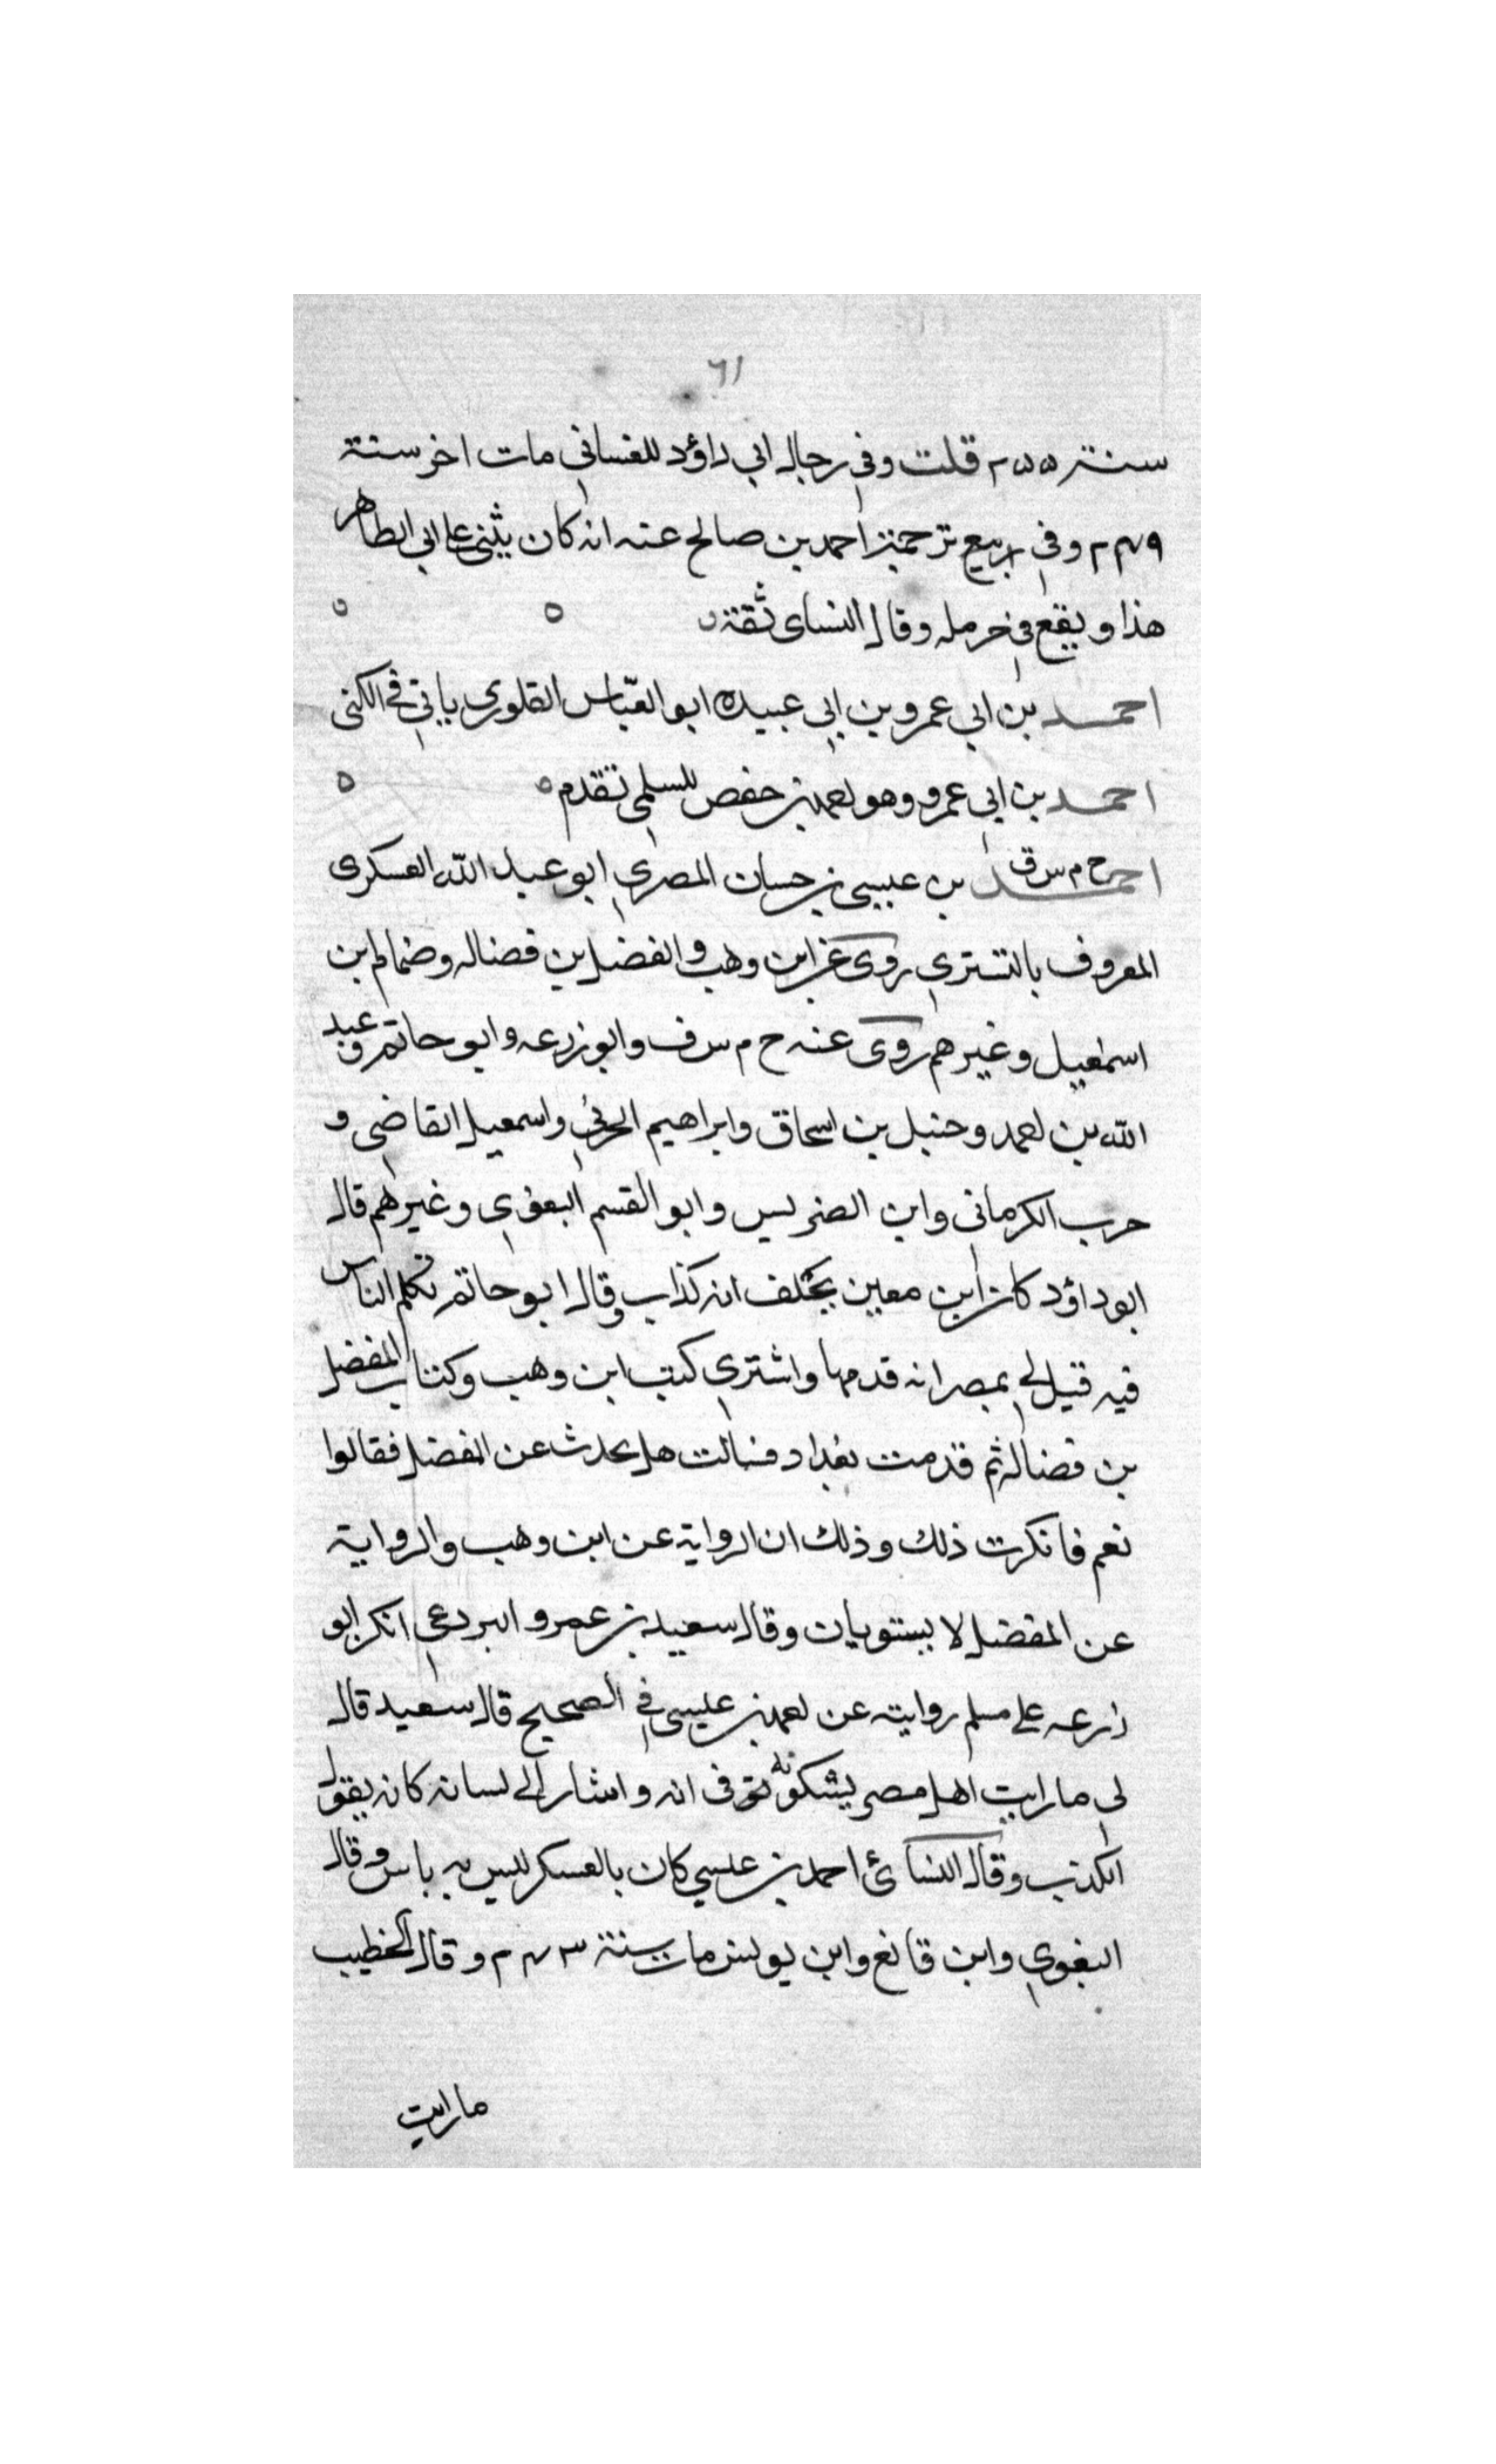 ٦١
سنة ٢٥٥ قلت وفي رجال ابي داؤد للغساني مات اخر سنة
٢٤٩ وفي ربيع ترجمة احمد بن صالح عنه انه كان يثني على ابي الطاهر
هذا ويقع في حرمله وقال النساي ثقة
احمد بن ابي عمرو بن ابي عبيده ابو العبّاس القلوري ياتي في الكنى
احمد بن ابي عمرو وهو احمد بن حفص السلمي تقدم
احمد خ م س ق بن عيسى بن حسان المصري ابو عبد الله العسكري
المعروف بالتستري روى عن ابن وهب والفضل بن فضاله وضمام بن
اسمعيل وغيرهم روى عنه خ م س ق وابو زرعه وابو حاتم وعبد
الله بن احمد وحنبل بن اسحاق وابراهيم الحربي واسمعيل القاضي و
حرب الكرماني وابن الضريس وابو القسم البغوي وغيرهم قال
ابو داؤد كان ابن معين يحلف انه كذاب وقال ابو حاتم تكلم الناس
فيه قيل لي بمصر انه قدمها واشتري كتب ابن وهب وكتاب المفضل
بن فضاله ثم قدمت بغداد فسالت هل يحدث عن المفضل فقالوا
نعم فانكرت ذلك وذلك ان الرواية عن ابن وهب والرواية
عن المفضل لا يستويان وقال سعيد بن عمرو البردعي انكر ابو
زرعه على مسلم روايته عن احمد بن عيسى في الصحيح قال سعيد قال
لي ما رايت اهل مصر يشكون في انه واشار الى لسانه كانه يقول
الكذب وقال النسائي احمد بن عيسي كان بالعسكر ليس به باس وقال
البغوي وابن قانع وابن يونس مات سنة ٢٤٣ وقال الخطيب
ما رايت